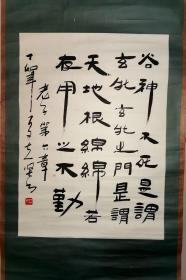 谷神不死是謂
玄牝玄牝之門是謂
天地根綿綿若
存用之不勤
老子第六章
丁卯年